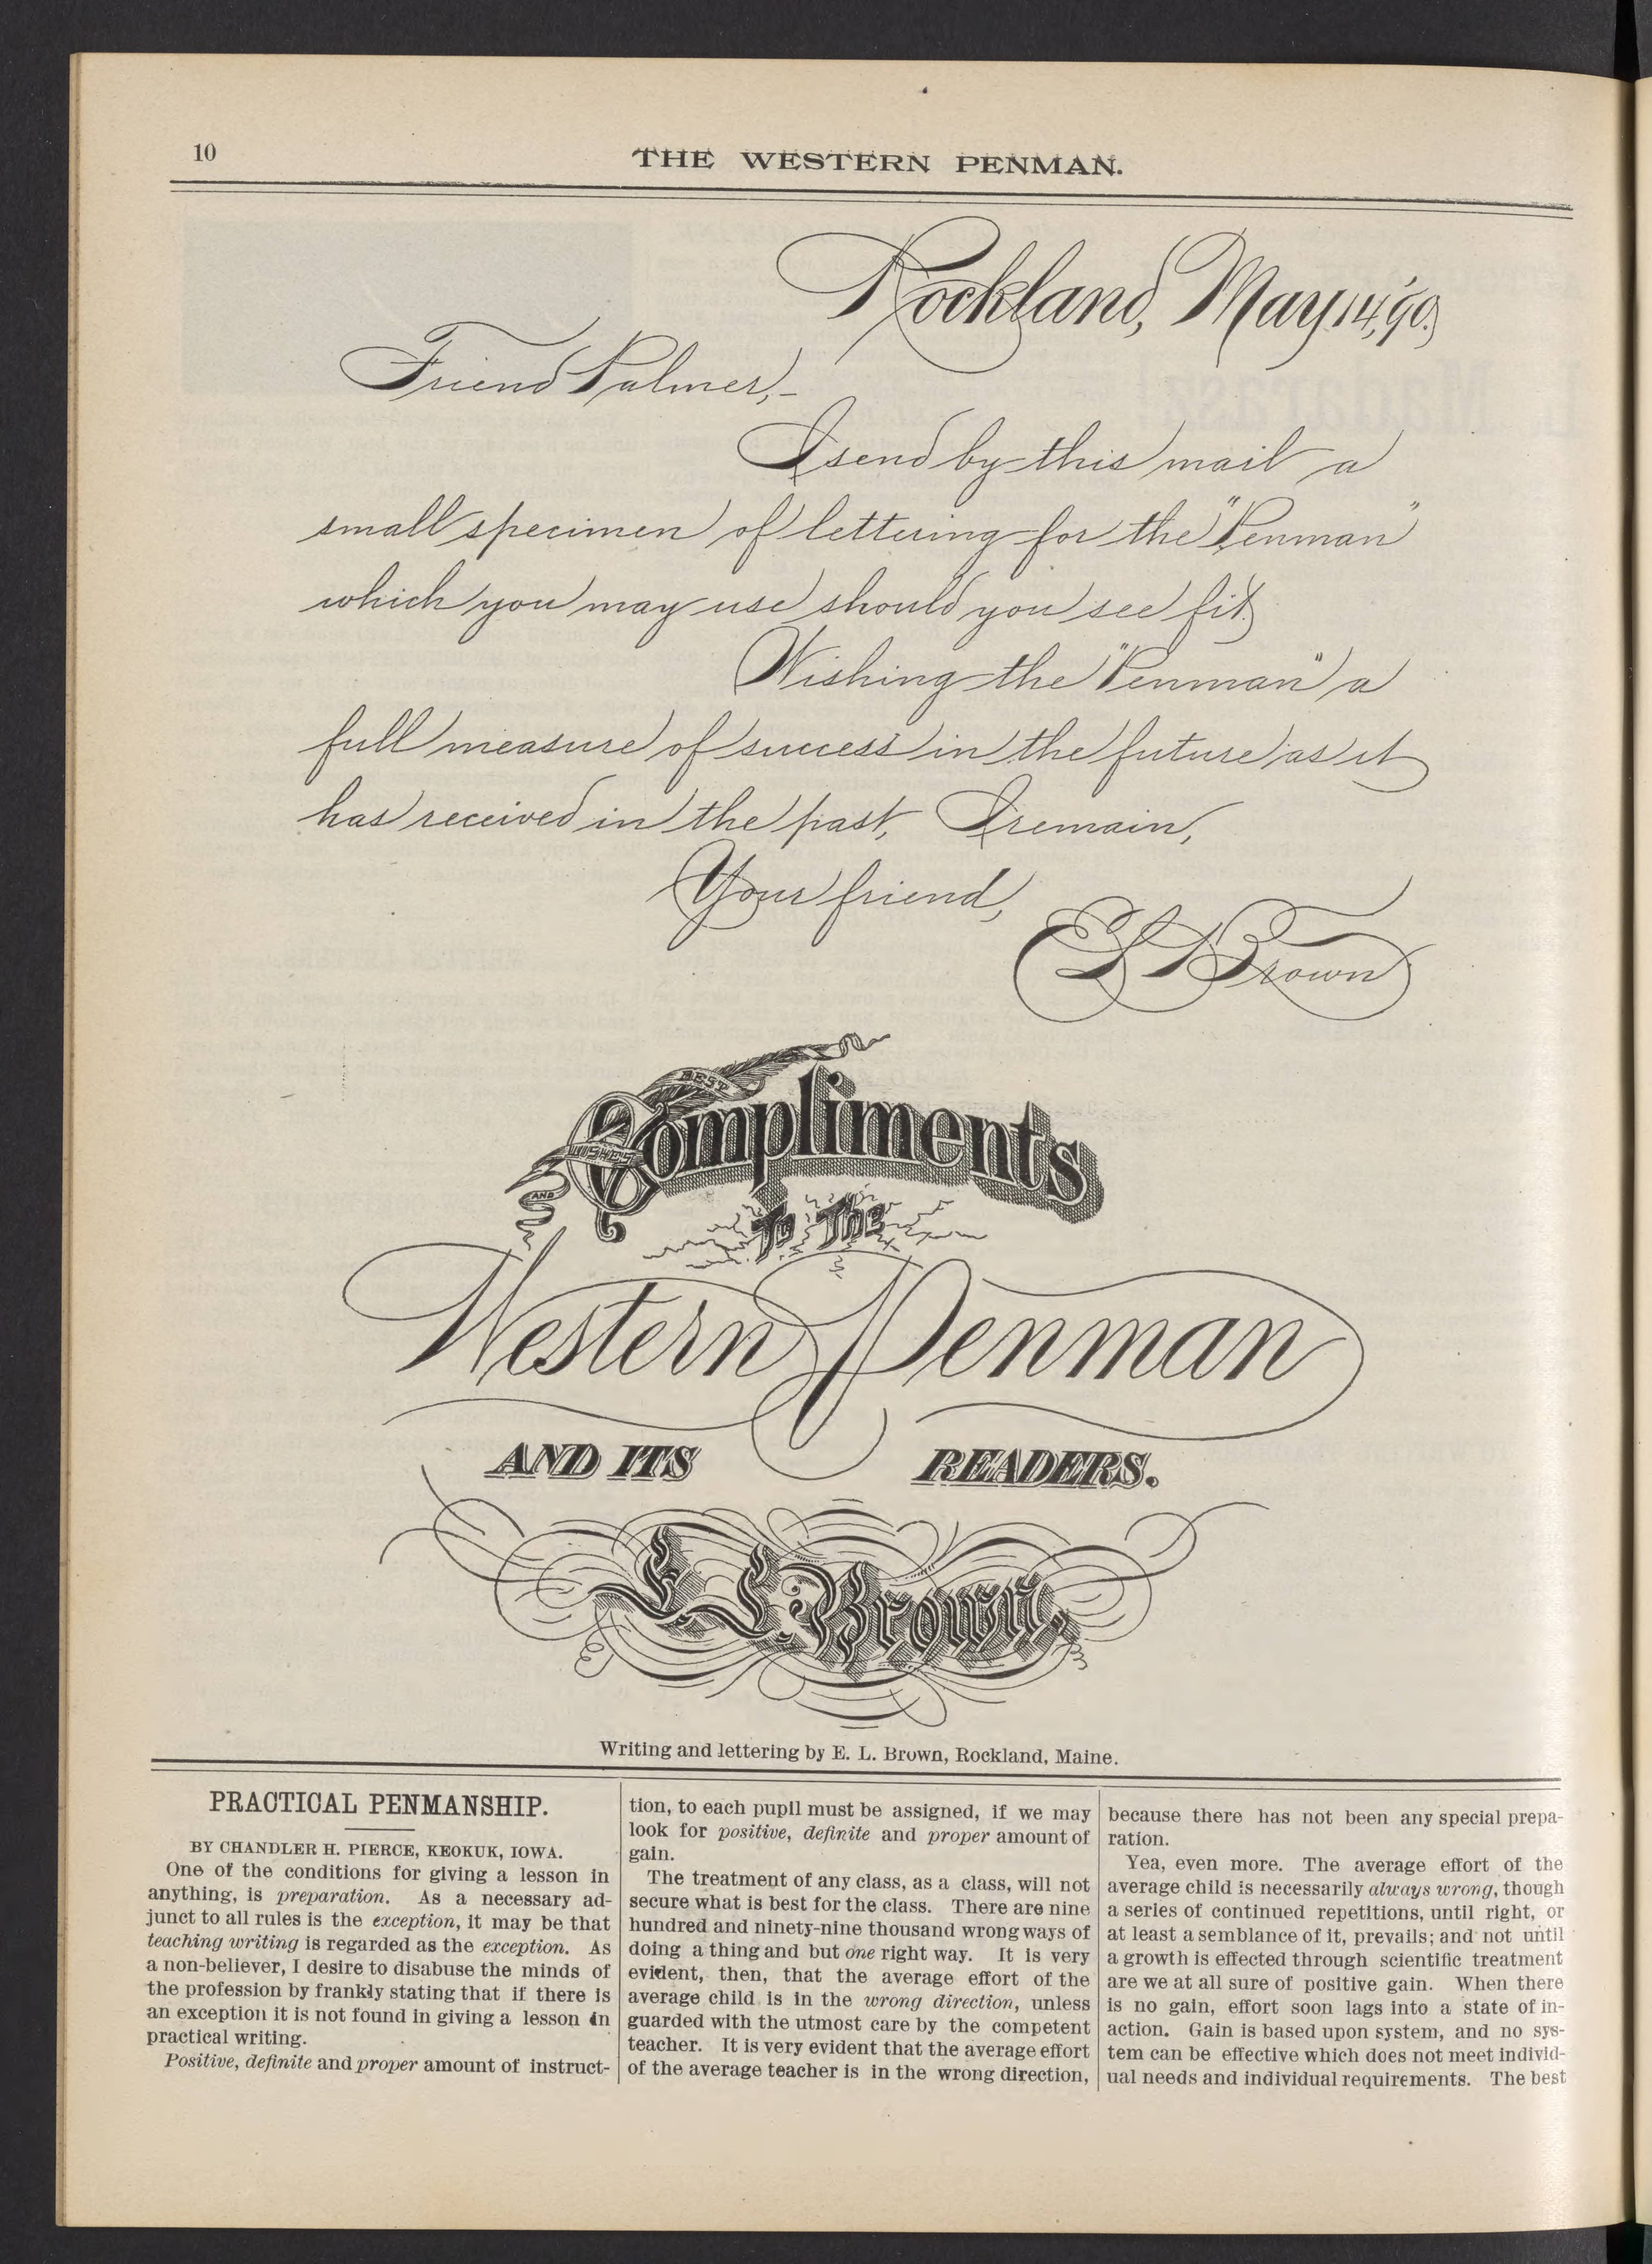 10
THE WESTERN PENMAN.
Rockland, May 14, '90.
Friend Palmer,-
I send by this mail a
small specimen of lettering for the "Penman"
which you may use should you see fit.
Wishing the "Penman" a
full measure of success in the future as it
has received in the past, I remain,
Your friend,
E L Brown
BEST
WISHES
AND
Compliments
To The
Western Penman
AND ITS READERS.
E. L. Brown.
Writing and lettering by E. L. Brown, Rockland, Maine.
PRACTICAL PENMANSHIP.
BY CHANDLER H. PIERCE, KEOKUK, IOWA.
One of the conditions for giving a lesson in
anything, is preparation. As a necessary ad-
junct to all rules is the exception, it may be that
teaching writing is regarded as the exception. As
a non-believer, I desire to disabuse the minds of
the profession by frankly stating that if there is
an exception it is not found in giving a lesson in
practical writing.
Positive, definite and proper amount of instruct-
tion, to each pupil must be assigned, if we may
look for positive, definite and proper amount of
gain.
The treatment of any class, as a class, will not
secure what is best for the class. There are nine
hundred and ninety-nine thousand wrong ways of
doing a thing and but one right way. It is very
evident, then, that the average effort of the
average child is in the wrong direction, unless
guarded with the utmost care by the competent
teacher. It is very evident that the average effort
of the average teacher is in the wrong direction,
because there has not been any special prepa-
ration.
Yea, even more. The average effort of the
average child is necessarily always wrong, though
a series of continued repetitions, until right, or
at least a semblance of it, prevails; and not until
a growth is effected through scientific treatment
are we at all sure of positive gain. When there
is no gain, effort soon lags into a state of in-
action. Gain is based upon system, and no sys-
tem can be effective which does not meet individ-
ual needs and individual requirements. The best